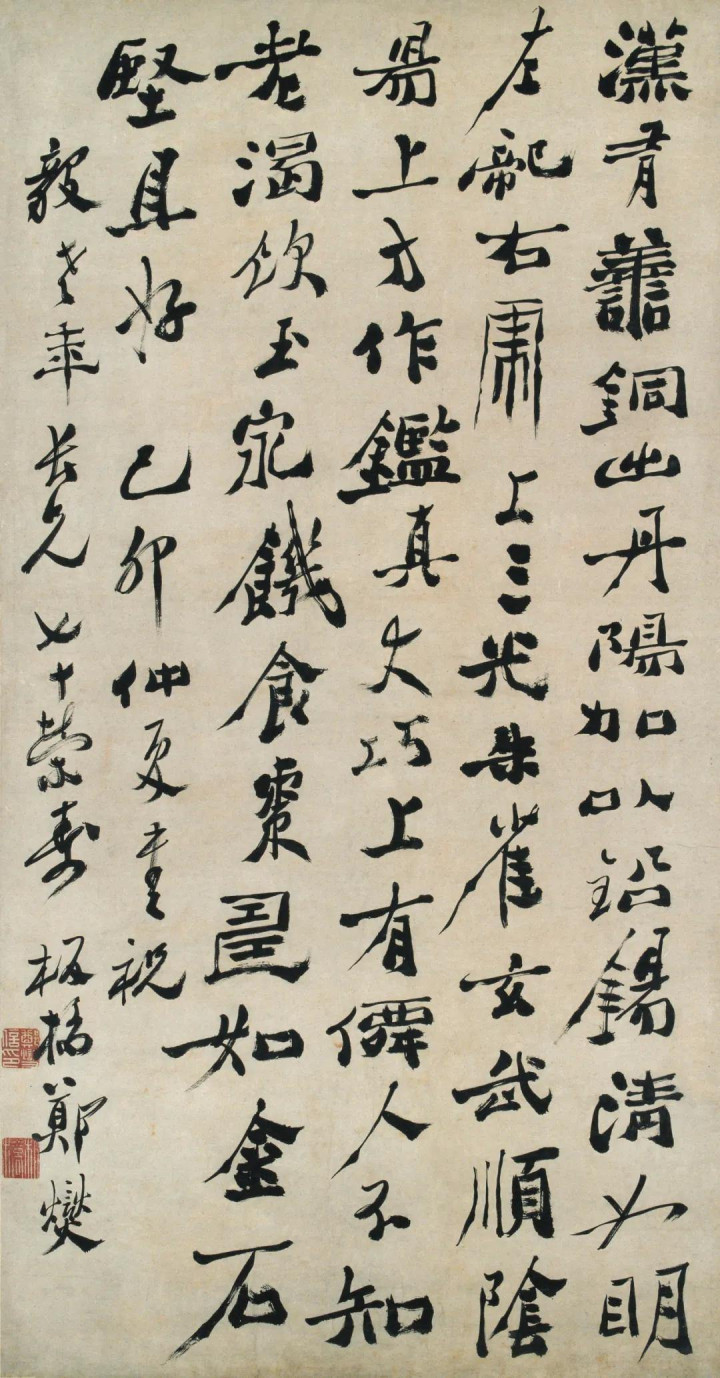 漢有善銅出丹陽加以鉛錫清如明
左龍右虎上三光朱雀玄武順陰
昜上方作鑑真大巧上有僊人不知
老渴飲玉泉饑食棗壽如金石
堅且好 己卯仲夏書祝
毅老年長兄七十榮壽 板橋鄭燮